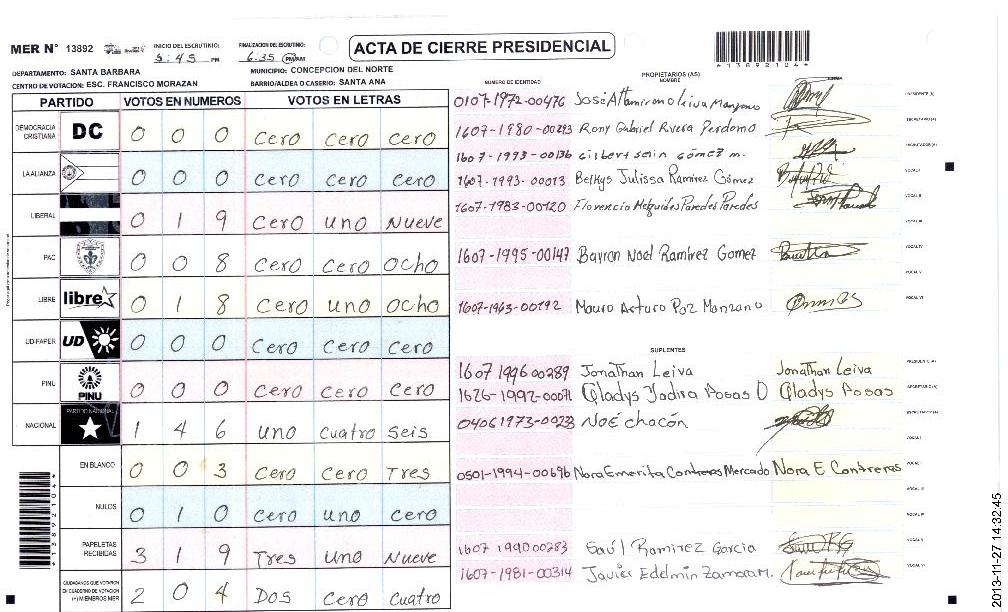 MER N° 13892
INICIO DEL ESCRUTINIO: 5:45 PM
FINALIZACION DEL ESCRUTINIO: 6:35 PM/AM
ACTA DE CIERRE PRESIDENCIAL
*13892104*
DEPARTAMENTO: SANTA BARBARA
MUNICIPIO: CONCEPCION DEL NORTE
CENTRO DE VOTACION: ESC. FRANCISCO MORAZAN
BARRIO/ALDEA O CASERIO: SANTA ANA
PARTIDO VOTOS EN NUMEROS VOTOS EN LETRAS
DEMOCRACIA CRISTIANA DC 0 0 0 Cero Cero Cero
LA ALIANZA 0 0 0 Cero Cero Cero
LIBERAL 0 1 9 Cero uno Nueve
PAC 0 0 8 Cero Cero Ocho
LIBRE libre 0 1 8 Cero uno Ocho
UD-FAPER UD 0 0 0 Cero Cero Cero
PINU PINU 0 0 0 Cero Cero Cero
NACIONAL PARTIDO NACIONAL 1 4 6 uno Cuatro Seis
EN BLANCO 0 0 3 Cero Cero Tres
NULOS 0 1 0 Cero uno Cero
PAPELETAS RECIBIDAS 3 1 9 Tres Uno Nueve
CIUDADANOS QUE VOTARON EN CUADERNO DE VOTACION (+) MIEMBROS MER 2 0 4 Dos Cero Cuatro
*13892104*
NUMERO DE IDENTIDAD
PROPIETARIOS (AS)
NOMBRE
FIRMA
0107-1972-00476 José Altamirano Leiva PRESIDENTE (A)
1607-1980-00293 Rony Gabriel Rivera Perdomo SECRETARIO (A)
1607-1993-00136 Gilbert Gómez m. ESCRUTADOR (A)
1607-1993-00013 Belkys Julissa Ramirez Gómez VOCAL I
1607-1983-00120 Florencio Melquides Paredes Paredes VOCAL II
VOCAL III
1607-1995-00147 Bayron Noel Ramirez Gomez VOCAL IV
VOCAL V
1607-1963-00192 Mauro Arturo Paz Manzano VOCAL VI
SUPLENTES
1607 1996 00289 Jonathan Leiva Jonathan Leiva PRESIDENTE (A)
1626-1992-00071 Gladys Yadira Posas O Gladys Posas SECRETARIO (A)
0406 1973-00233 NOE chacón ESCRUTADOR (A)
VOCAL I
0501-1994-00696 Nora Emerita Contreras Mercado Nora E Contreras VOCAL II
VOCAL III
VOCAL IV
1607 1990 00283 Saúl Ramirez Garcia VOCAL V
1607-1981-00314 Javier Edelmin Zamora M. VOCAL VI
2013-11-27 14:32:45